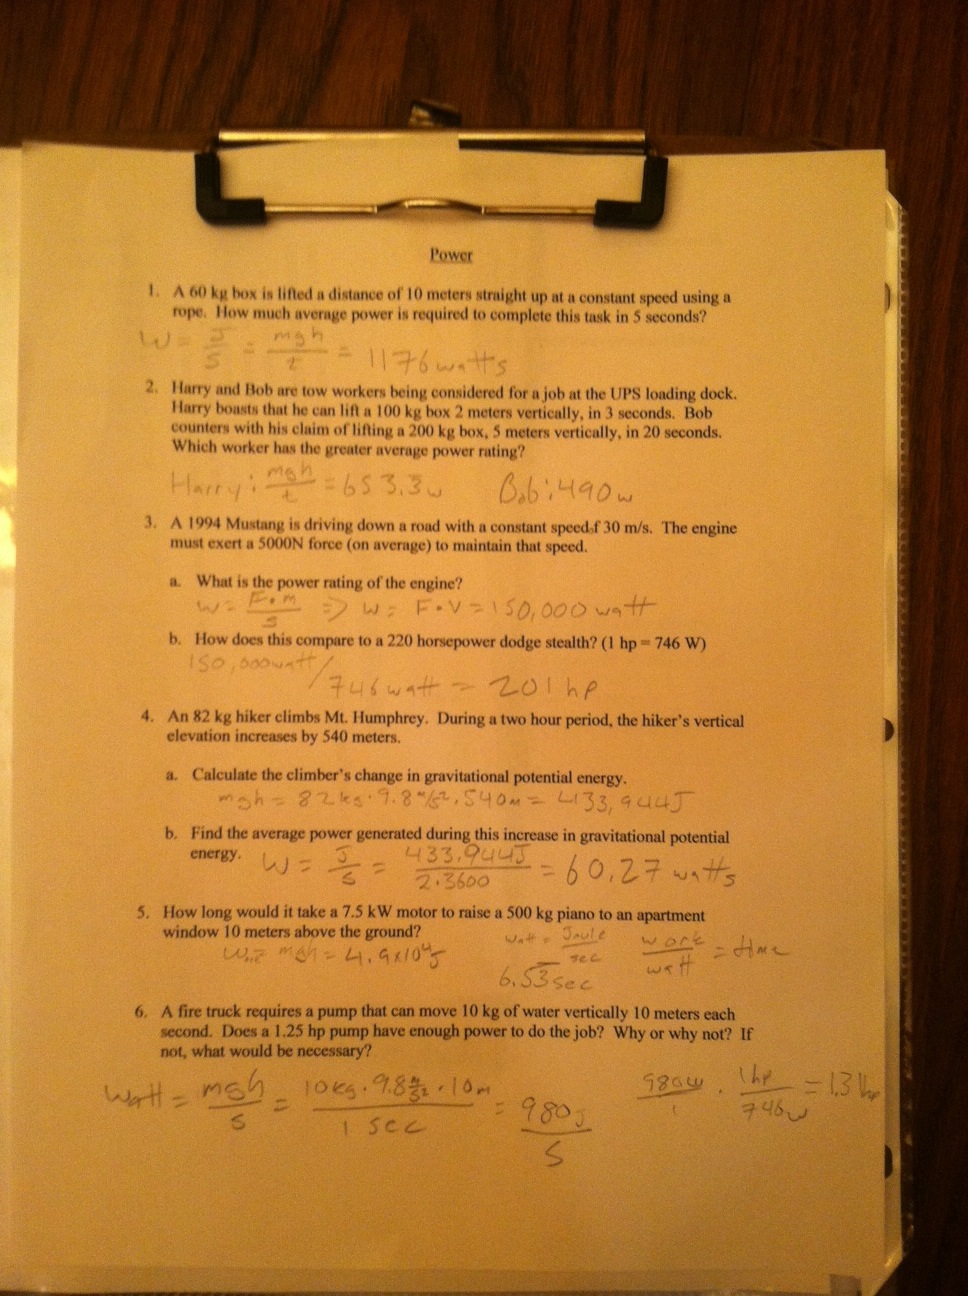 Power
1. A 60 kg box is lifted a distance of 10 meters straight up at a constant speed using a
rope. How much average power is required to complete this task in 5 seconds?
W = J/S = mgh/t = 1176 watts
2. Harry and Bob are tow workers being considered for a job at the UPS loading dock.
Harry boasts that he can lift a 100 kg box 2 meters vertically, in 3 seconds. Bob
counters with his claim of lifting a 200 kg box, 5 meters vertically, in 20 seconds.
Which worker has the greater average power rating?
Harry: mgh/t = 653.3w Bob: 490w
3. A 1994 Mustang is driving down a road with a constant speed f 30 m/s. The engine
must exert a 5000N force (on average) to maintain that speed.
a. What is the power rating of the engine?
W = F·m/s => W = F·V = 150,000 watt
b. How does this compare to a 220 horsepower dodge stealth? (1 hp = 746 W)
150,000watt/
746 watt = 201 hp
4. An 82 kg hiker climbs Mt. Humphrey. During a two hour period, the hiker's vertical
elevation increases by 540 meters.
a. Calculate the climber's change in gravitational potential energy.
mgh = 82kg·9.8m/s²·540m = 433,944J
b. Find the average power generated during this increase in gravitational potential
energy. W = J/s = 433,944J/2·3600 = 60.27 watts
5. How long would it take a 7.5 kW motor to raise a 500 kg piano to an apartment
window 10 meters above the ground?
mgh = 4.9x10⁴J watt = Joule/sec work/watt = time
6.53sec
6. A fire truck requires a pump that can move 10 kg of water vertically 10 meters each
second. Does a 1.25 hp pump have enough power to do the job? Why or why not? If
not, what would be necessary?
Watt = mgh/s = 10kg·9.8m/s²·10m/1 sec = 980J/S 980w/1 · 1hp/746w = 1.31hp